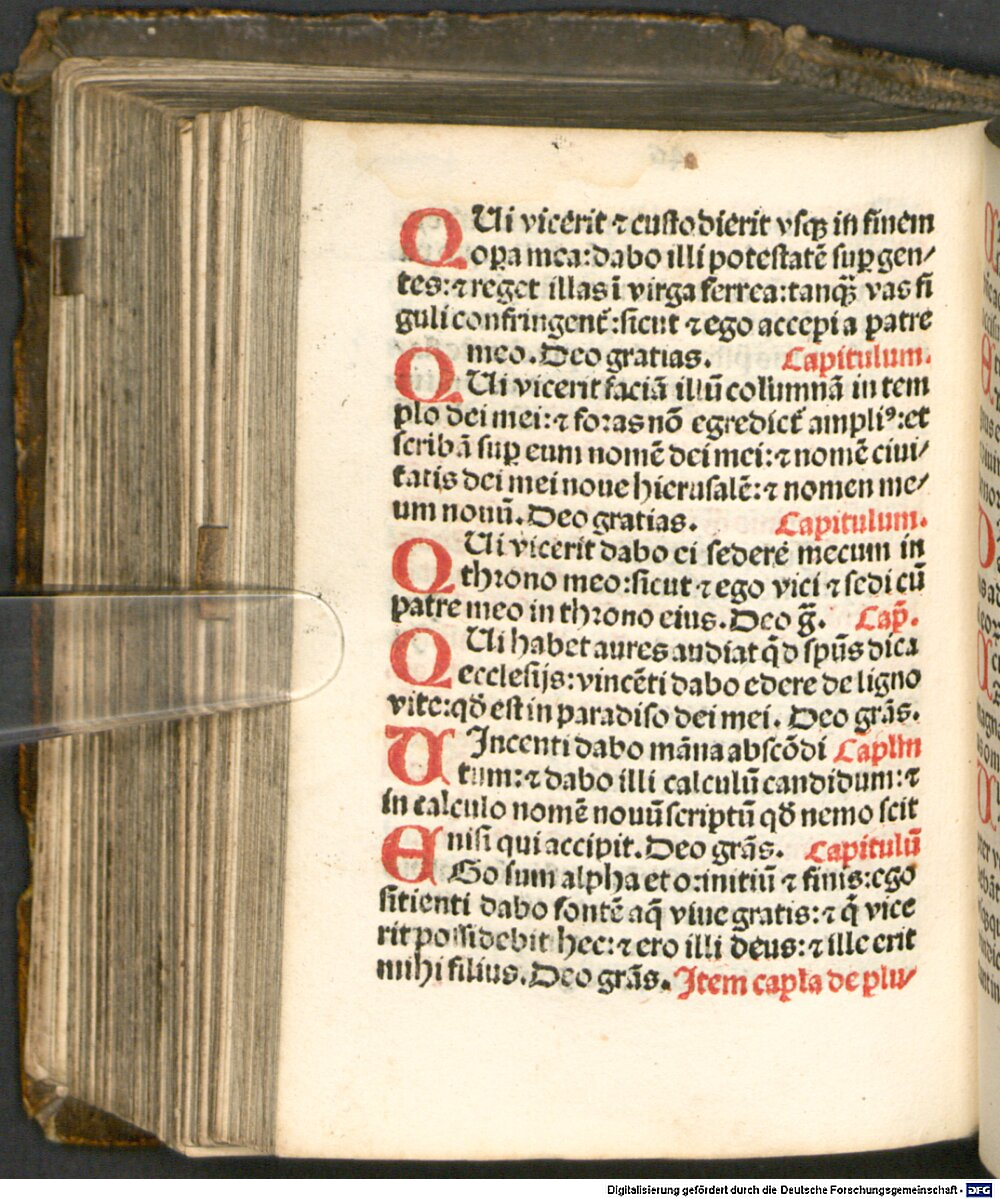 QUi vicerit ⁊ custodierit vsqꝫ in finem
opa mea: dabo illi potestatē sup gen/
tes: ⁊ reget illas ī virga ferrea: tanqꝫ vas fi
guli confringent᷑: sicut ⁊ ego accepi a patre
meo. Deo gratias. Capitulum.
QUi vicerit faciā illū columnā in tem
plo dei mei: ⁊ foras nō egrediet᷑ ampliꝰ: et
scribā sup eum nomē dei mei: ⁊ nomē ciui/
tatis dei mei noue hierusalē: ⁊ nomen me/
um nouū. Deo gratias. Capitulum.
QUi vicerit dabo ei sedere mecum in
throno meo: sicut ⁊ ego vici ⁊ sedi cū
patre meo in throno eius. Deo g̃. Cap̃.
QUi habet aures audiat qd̄ spūs dica
ecclesijs: vincēti dabo edere de ligno
vite: qd̄ est in paradiso dei mei. Deo grās.
UIncenti dabo māna abscōdi Caplm
tum: ⁊ dabo illi calculū candidum: ⁊
in calculo nomē nouū scriptū qd̄ nemo scit
nisi qui accipit. Deo grās. Capitulū
EGo sum alpha et o: initiū ⁊ finis: ego
sitienti dabo fontē aq̄ viue gratis: ⁊ q̄ vice
rit possidebit hec: ⁊ ero illi deus: ⁊ ille erit
mihi filius. Deo grās. Item capl̄a de plu/
Digitalisierung gefördert durch die Deutsche Forschungsgemeinschaft - DFG